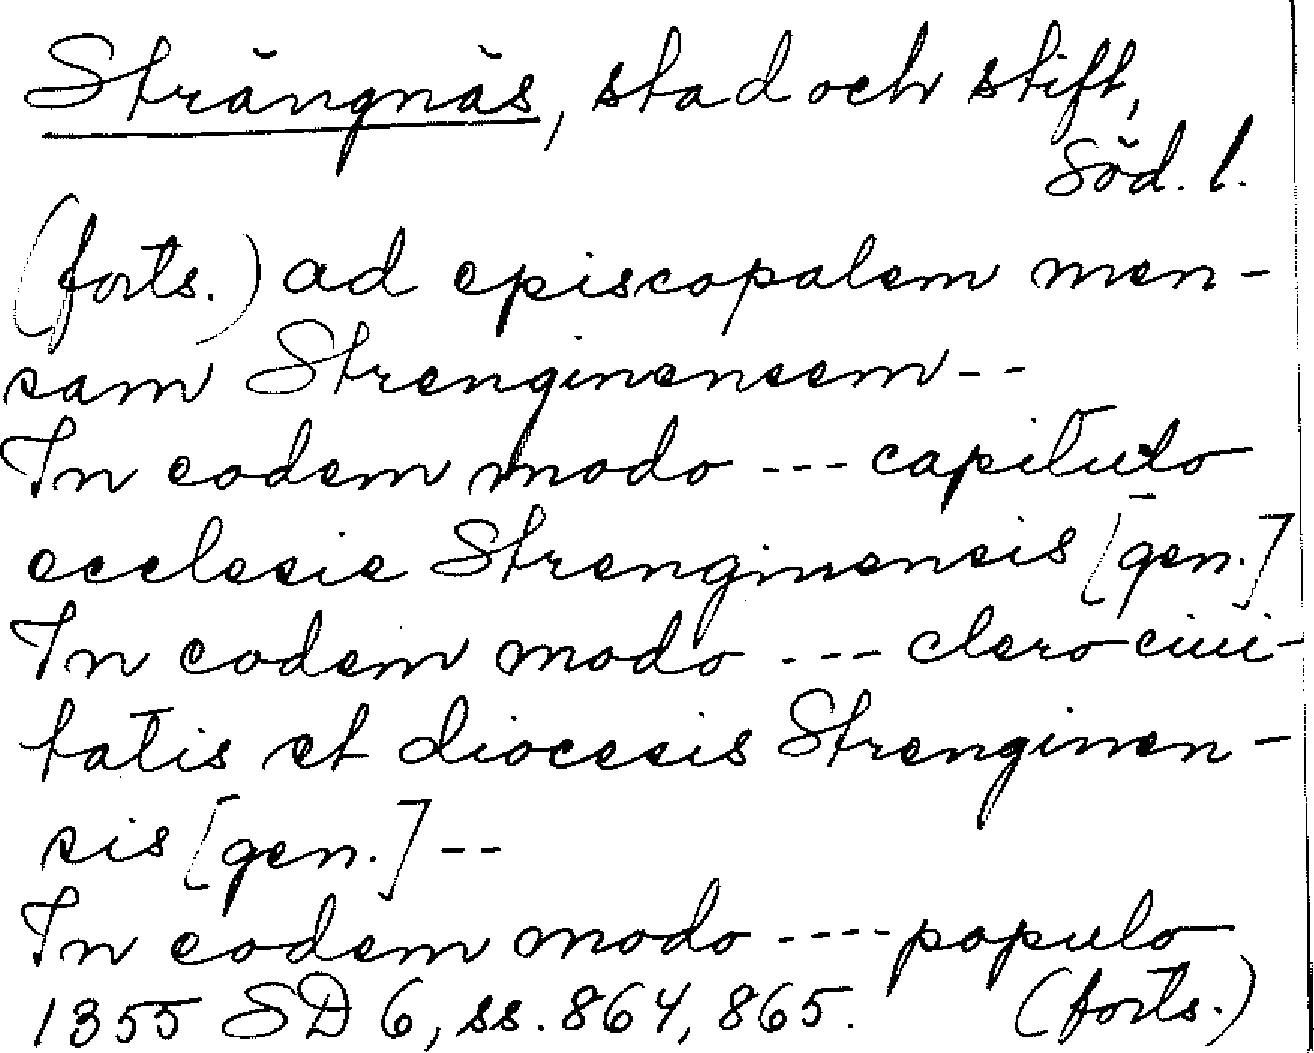 Strängnäs, stad och stift,
Söd. l.
(forts.) ad episcopalem men-
sam Strenginensem--
In eodem modo --- capitulo
ecclesie Strenginensis [gen.]
In eodem modo --- clero ciui-
tatis et diocesis Strenginen-
sis [gen.] --
In eodem modo ---- populo
1355 SD 6, ss. 864, 865. (forts.)